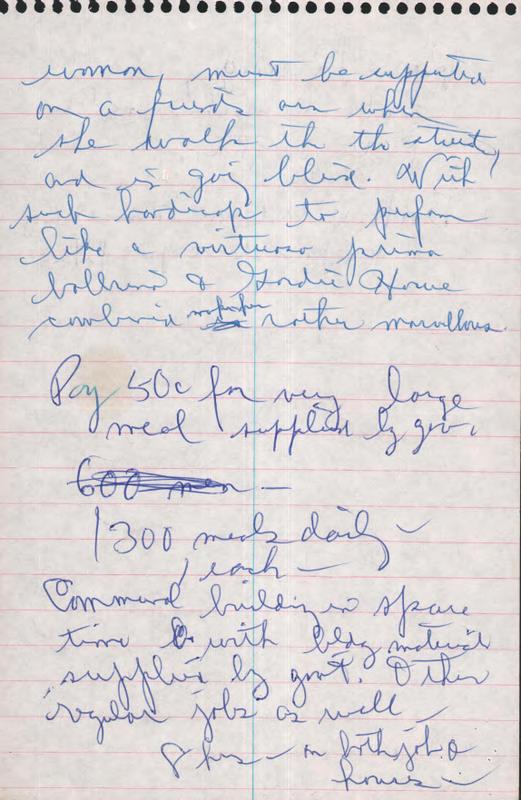 woman, must be supported
on a friends arm when
she walks th the street,
and is going blind. With
such handicap to perform
like a virtuoso prima
ballerina & Gordie Howe
combined rather marvellous.
Pay 50c for very large
meal supplied by gov.
600 men —
1300 meals daily —
1 each —
Command building in spare
time with bldg material
supplied by govt. Other
regular jobs as well —
8 hrs — on both jobs
houses —